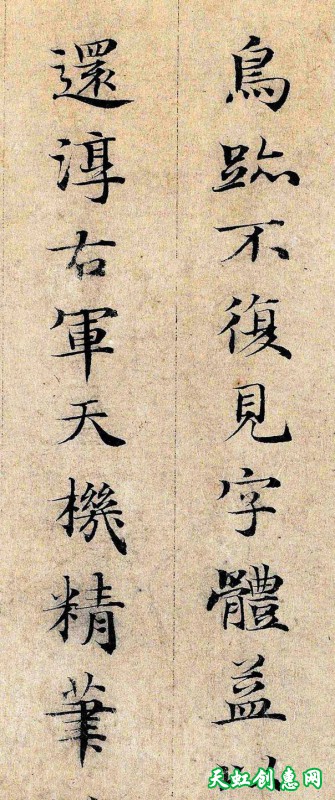 鳥跡不復見字體益以
還淳右軍天機精筆
天虹创惠网